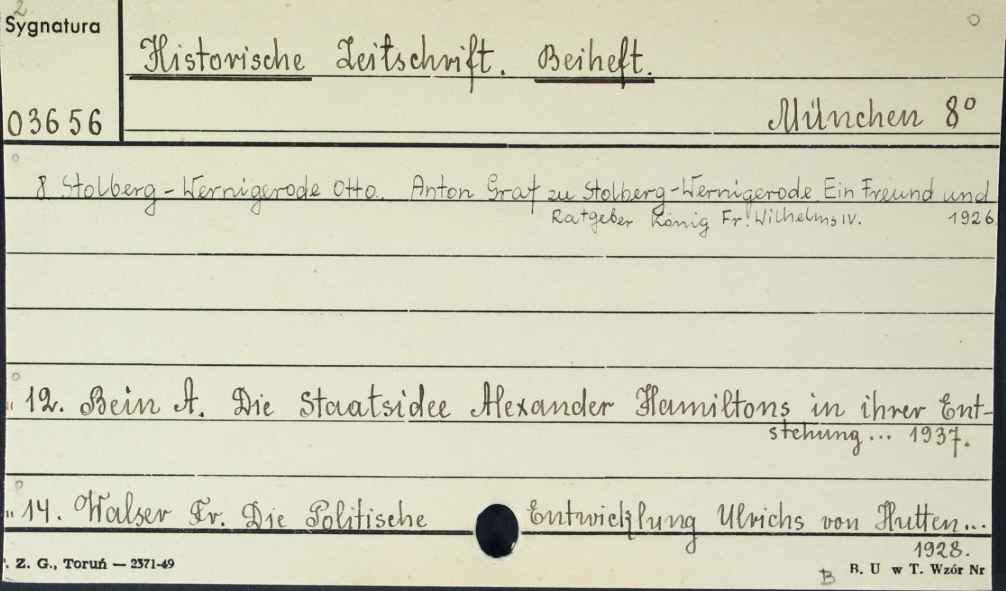 2
Sygnatura
Historische Zeitschrift. Beiheft.
03656
München 8°
8 Stolberg-Wernigerode Otto. Anton Graf zu Stolberg-Wernigerode Ein Freund und
Ratgeber König Fr. Wilhelms IV. 1926
" 12. Bein A. Die Staatsidee Alexander Hamiltons in ihrer Ent-
stehung... 1937.
" 14. Walser Fr. Die Politische Entwicklung Ulrichs von Hutten...
1928.
. Z. G., Toruń — 2371-49
B
B. U w T. Wzór Nr